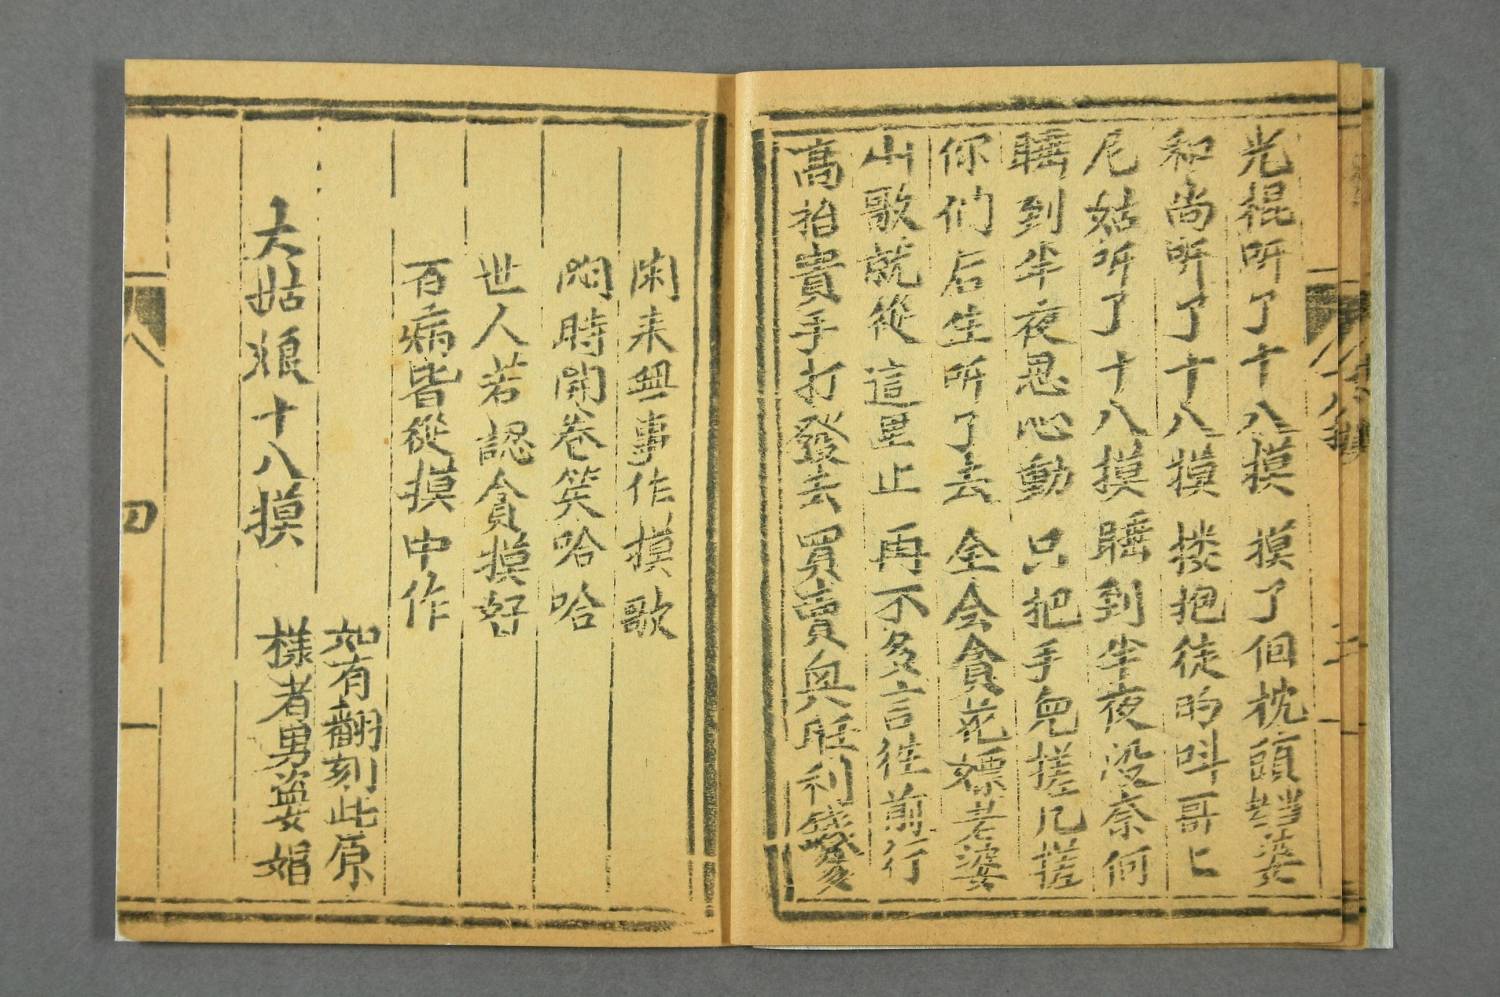 光棍听了十八摸 摸了個枕頭當婆
和尚听了十八摸 搂抱徒的叫哥匕
尼姑听了十八摸 睡到半夜没奈何
睡到半夜思心動 只把手兒搓几搓
你们后生听了去 全会貪花嫖老婆
山歌就從這里止 再不多言往前行
高抬貴手打發去 買賣興旺利錢多
閑来無事作摸歌
悶時開卷笑哈哈
世人若認貪摸好
百病皆從摸中作
大姑娘十八摸
如有翻刻此原
樣者男盗女娼
四